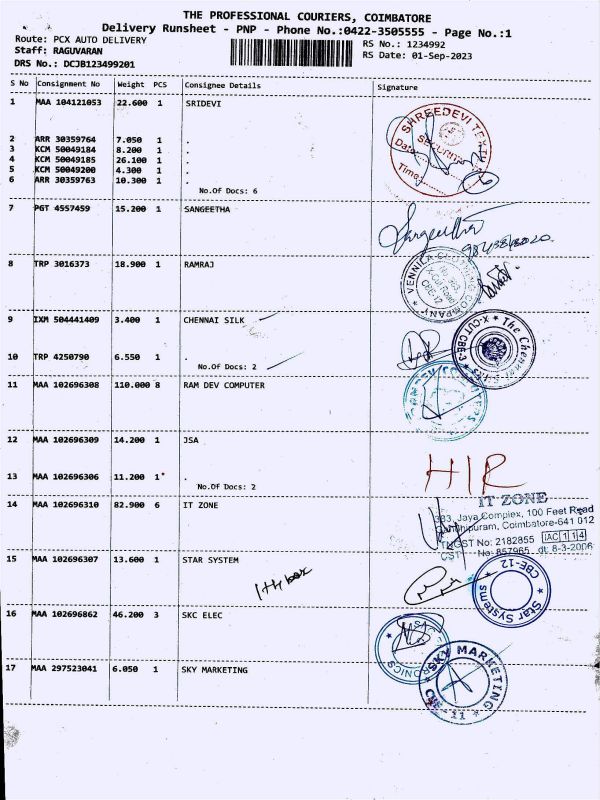 THE PROFESSIONAL COURIERS, COIMBATORE
Delivery Runsheet - PNP - Phone No.:0422-3505555 - Page No.:1
Route: PCX AUTO DELIVERY
RS No.: 1234992
Staff: RAGUVARAN
RS Date: 01-Sep-2023
DRS No.: DCJB123499201
S No Consignment No Weight PCS Consignee Details Signature
1 MAA 104121053 22.600 1 SRIDEVI
SHREEDEVI TEXTILE
SECURITY
Date
Time
2 ARR 30359764 7.050 1 .
3 KCM 50049184 8.200 1 .
4 KCM 50049185 26.100 1 .
5 KCM 50049200 4.300 1 .
6 ARR 30359763 10.300 1 .
No.Of Docs: 6
7 PGT 4557459 15.200 1 SANGEETHA
Sangeetha
8 TRP 3016373 18.900 1 RAMRAJ
COMPANY
9 IXM 504441409 3.400 1 CHENNAI SILK
The Chennai Silks
X-CUT CBE-3
10 TRP 4250790 6.550 1 .
No.Of Docs: 2
11 MAA 102696308 110.000 8 RAM DEV COMPUTER
12 MAA 102696309 14.200 1 JSA
H/R
13 MAA 102696306 11.200 1 .
No.Of Docs: 2
14 MAA 102696310 82.900 6 IT ZONE
IT ZONE
383, Jaya Complex, 100 Feet Road
Gandhipuram, Coimbatore-641 012
TNGST No: 2182855 IAC 114
CST No: 857965 dt: 8-3-2006
15 MAA 102696307 13.600 1 STAR SYSTEM
Star Systems
CBE-12
16 MAA 102696862 46.200 3 SKC ELEC
17 MAA 297523041 6.050 1 SKY MARKETING
SKY MARKETING
CBE-11